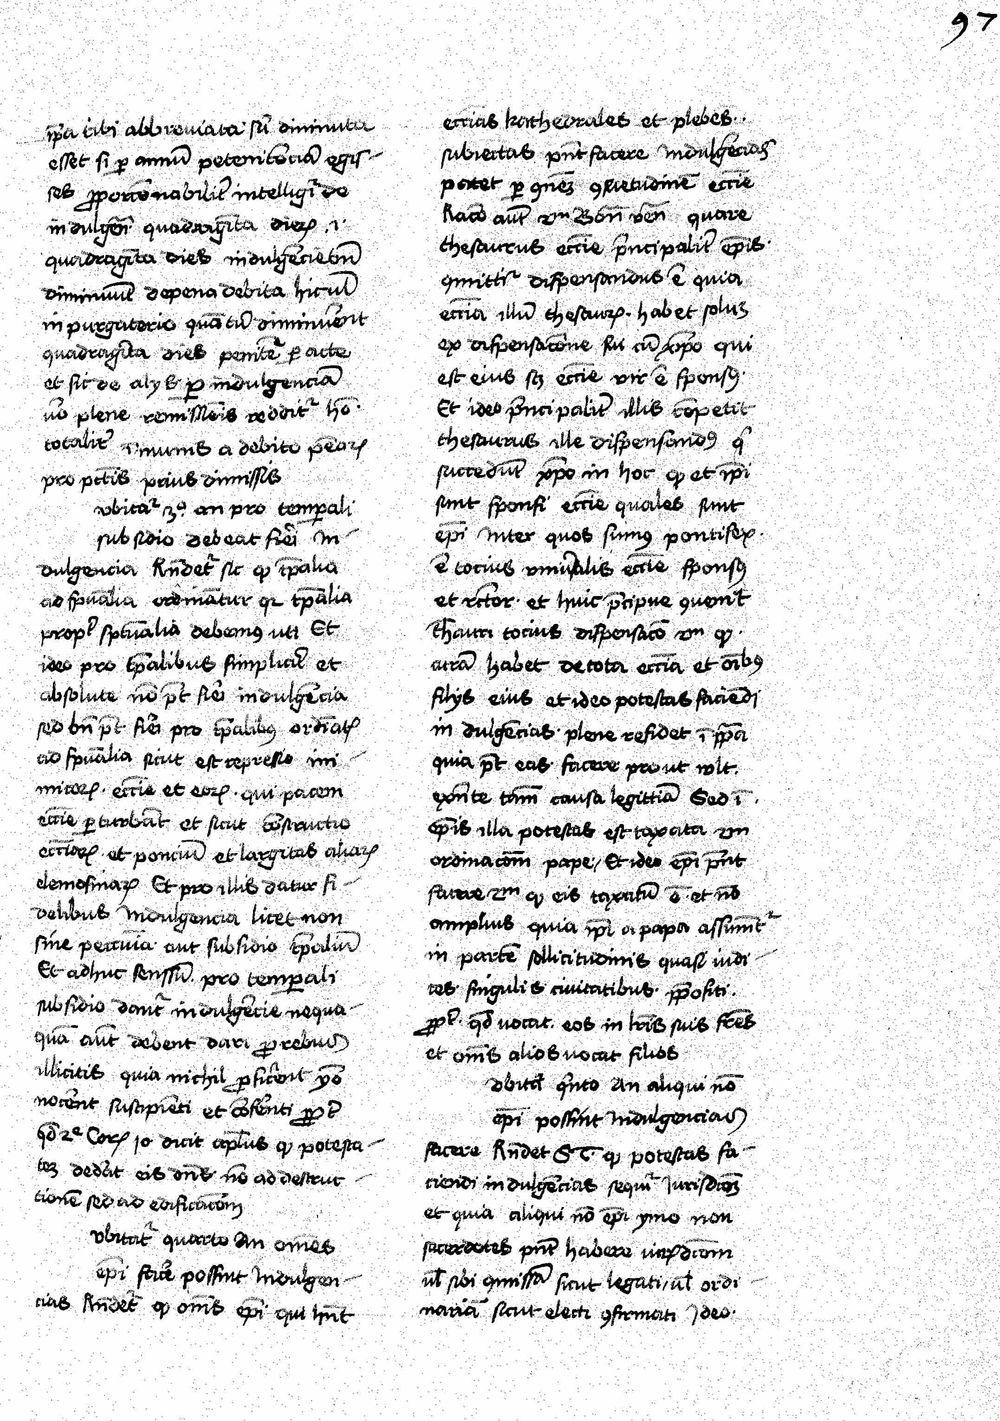 97
ip̄a tibi abbreviata sū diminuta
esset si p̲ annū penitēciā egis-
ses p̲porcōnabilit̄ intelligit̄ de
indulgen̄ quadragīta dieꝝ .i.
quadragīta dies indulgēcie
diminuūt de pena debita hic ul̄
in purgatorio quātū diminuerēt
quadragīta dies penitē p̲acte
et sic de alijs p̲ indulgenciā
v̄o plene remissiōis reddit̄ hō
totalit̄ īmunis a debito penaꝝ
pro pctīs prius dimissis
vbitat̄ 3º an pro temp̲ali
subsidio debeat fieri In-
dulgencia Rn̄det̄ sic ꝙ tp̄alia
ad spūalia ordinātur q2 tp̄alia
propt̄ spūalia debemꝰ uti Et
ideo pro tp̄alibus simplicit̄ et
absolute nō pt̄ fieri indulgēcia
sed bn̄ pt̄ fieri pro tp̄alibꝰ ordīatꝭ
ad spūalia sicut est repressio ini-
micoꝝ eccīe et eoꝝ qui pacem
eccīe p̲turbāt et sicut cōstructio
eccīaꝝ et ponciū et largitas aliaꝝ
elemosinaꝝ Et pro illis datur fi-
delibus Indulgencia licet non
sine pecunia aut subsidio tp̄aliū
Et adhuc sensū pro temp̲ali
subsidio dant̄ indulgēcie nequa-
quā aūt debent dari p̲ rebus
illicitis quia nichil p̲ficerēt ymo
nocēnt suscipiēti et cōferēti p̲pt̄
qd̄ 2ª Coꝝ 10 dicit apl̄us ꝙ potesta-
tem dedit eis dn̄s nō ad destruc-
tionē sed ad edificacōem
vbitat̄ quarto An omēs
ep̄i facere possint Indulgen-
cias Rn̄det̄ ꝙ om̄s ep̄i qui hn̄t
eccīas kathedrales et plebes
subiectas pn̄t facere Indulgēcias
patet p̲ ꝯnēꝫ ꝯsuetudinē eccīe
Racō aūt 2m Bon̄ ven̄ quare
thesaurus eccīe p̄ncipalit̄ ep̄is
ꝯmittit̄ dispensandus ē quia
eccīa illū thesauꝝ habet solū
ex dispensacōne sui cū xp̄o qui
est eius scꝫ eccīe vir ē sponsꝰ
Et ideo p̄ncipalit̄ illis cōpetit
thesaurus ille dispensandꝰ qͥ
succedūt xp̄o in hoc ꝙ et ip̄i
sunt sponsi eccīe quales sunt
ep̄i Inter quos sumꝰ pontifex
ē tocius vniu̇salis eccīe sponsꝰ
et rector et huic p̄cipue ꝯuenit
th̄auri tocius dispensacō 2m ꝙ
curā habet de tota eccīa et oībꝰ
filijs eius et ideo potestas faciēdi
indulgēcias plene residet ī pp̄a
quia pt̄ eas facere prout vult
exn̄te tam̄ causa legittīa Sed ī
ep̄is illa potestas est taxata 2m
ordinacōem pape Et ideo ep̄i pn̄t
facere 2m ꝙ eis taxatū ē et nō
amplius quia ip̄i a papa assumūt̄
in partē sollicitudinis quasi iudi-
ces singulis ciuitatibus p̲positi
p̲pt̄ qd̄ vocat eos in lr̄is suis fr̄es
et om̄s alios vocat filios
vbitat̄ qͥnto An aliqui nō
ep̄i possint Indulgencias
facere Rn̄det S T ꝙ potestas fa-
ciendi indulgēcias sequit̄ Iurisdicōem
et quia aliqui nō ep̄i ymo non
sacerdotes pn̄t habere iurisdicōem
ul̄ sibi ꝯmissā sicut legati ul̄ ordi-
nariā sicut electi ꝯfirmati Ideo